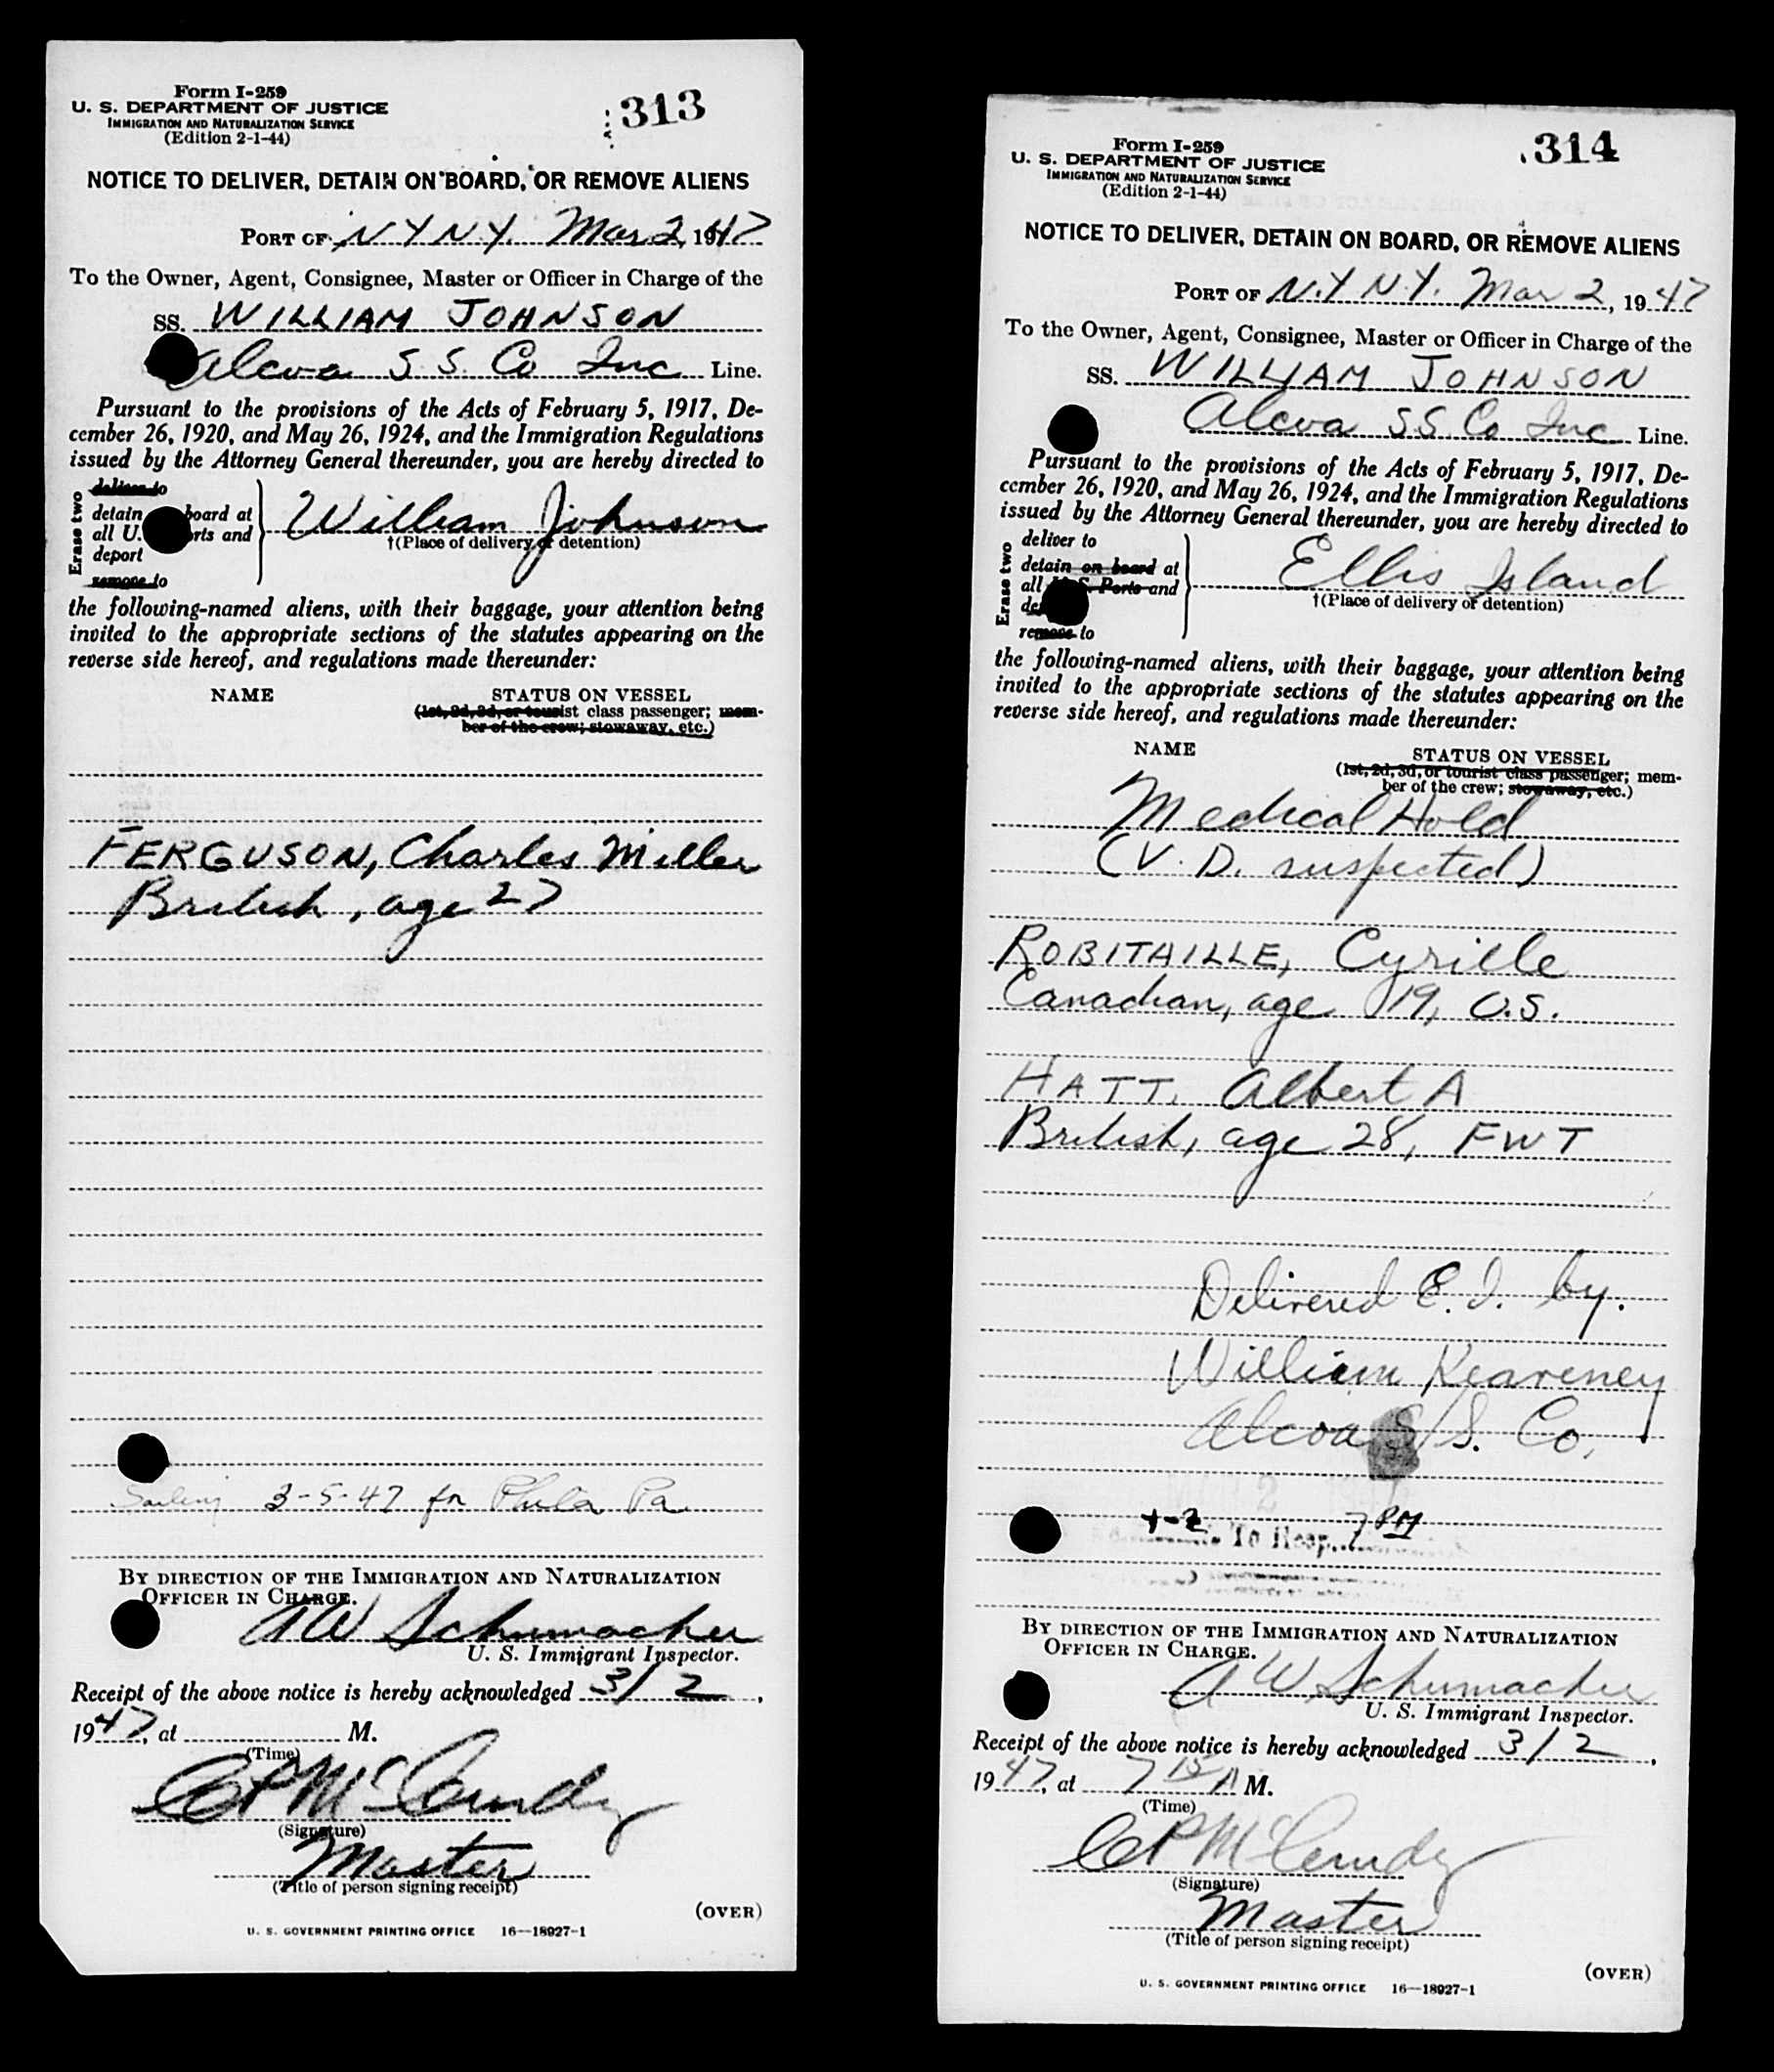 Form I-259
U. S. DEPARTMENT OF JUSTICE
IMMIGRATION AND NATURALIZATION SERVICE
(Edition 2-1-44)
313
NOTICE TO DELIVER, DETAIN ON BOARD, OR REMOVE ALIENS
PORT OF N Y N.Y. Mar 2, 1947
To the Owner, Agent, Consignee, Master or Officer in Charge of the
SS. WILLIAM JOHNSON
Alcoa S.S. Co Inc Line.
Pursuant to the provisions of the Acts of February 5, 1917, De-
cember 26, 1920, and May 26, 1924, and the Immigration Regulations
issued by the Attorney General thereunder, you are hereby directed to
Erase two
deliver to
detain board at
all U. rts and
deport
remove to
William Johnson
†(Place of delivery or detention)
the following-named aliens, with their baggage, your attention being
invited to the appropriate sections of the statutes appearing on the
reverse side hereof, and regulations made thereunder:
NAME STATUS ON VESSEL
(1st, 2d, 3d, or tourist class passenger; mem-
ber of the crew; stowaway, etc.)
FERGUSON, Charles Miller
British, age 27
Sailing 3-5-47 for Phila Pa.
BY DIRECTION OF THE IMMIGRATION AND NATURALIZATION
OFFICER IN CHARGE.
A W Schumacher
U. S. Immigrant Inspector.
Receipt of the above notice is hereby acknowledged 3/2,
1947, at M.
(Time)
(Signature)
Master
(Title of person signing receipt)
(OVER)
U. S. GOVERNMENT PRINTING OFFICE 16—18927-1
Form I-259
U. S. DEPARTMENT OF JUSTICE
IMMIGRATION AND NATURALIZATION SERVICE
(Edition 2-1-44)
314
NOTICE TO DELIVER, DETAIN ON BOARD, OR REMOVE ALIENS
PORT OF N.Y N.Y. Mar 2, 1947
To the Owner, Agent, Consignee, Master or Officer in Charge of the
SS. WILLIAM JOHNSON
Alcoa S.S. Co Inc Line.
Pursuant to the provisions of the Acts of February 5, 1917, De-
cember 26, 1920, and May 26, 1924, and the Immigration Regulations
issued by the Attorney General thereunder, you are hereby directed to
Erase two
deliver to
detain on board at
all U. S. Ports and
de
remove to
Ellis Island
†(Place of delivery or detention)
the following-named aliens, with their baggage, your attention being
invited to the appropriate sections of the statutes appearing on the
reverse side hereof, and regulations made thereunder:
NAME STATUS ON VESSEL
(1st, 2d, 3d, or tourist class passenger; mem-
ber of the crew; stowaway, etc.)
Medical Hold
(V. D. suspected)
ROBITAILLE, Cyrille
Canadian, age 19, O.S.
HATT, Albert A
British, age 28, FWT
Delivered E. I. by.
William Keareney
Alcoa S/S. Co.
To Hosp. 7 PM
BY DIRECTION OF THE IMMIGRATION AND NATURALIZATION
OFFICER IN CHARGE.
A W Schumacher
U. S. Immigrant Inspector.
Receipt of the above notice is hereby acknowledged 3/2,
1947, at 7 15 A M.
(Time)
(Signature)
Master
(Title of person signing receipt)
(OVER)
U. S. GOVERNMENT PRINTING OFFICE 16—18927-1